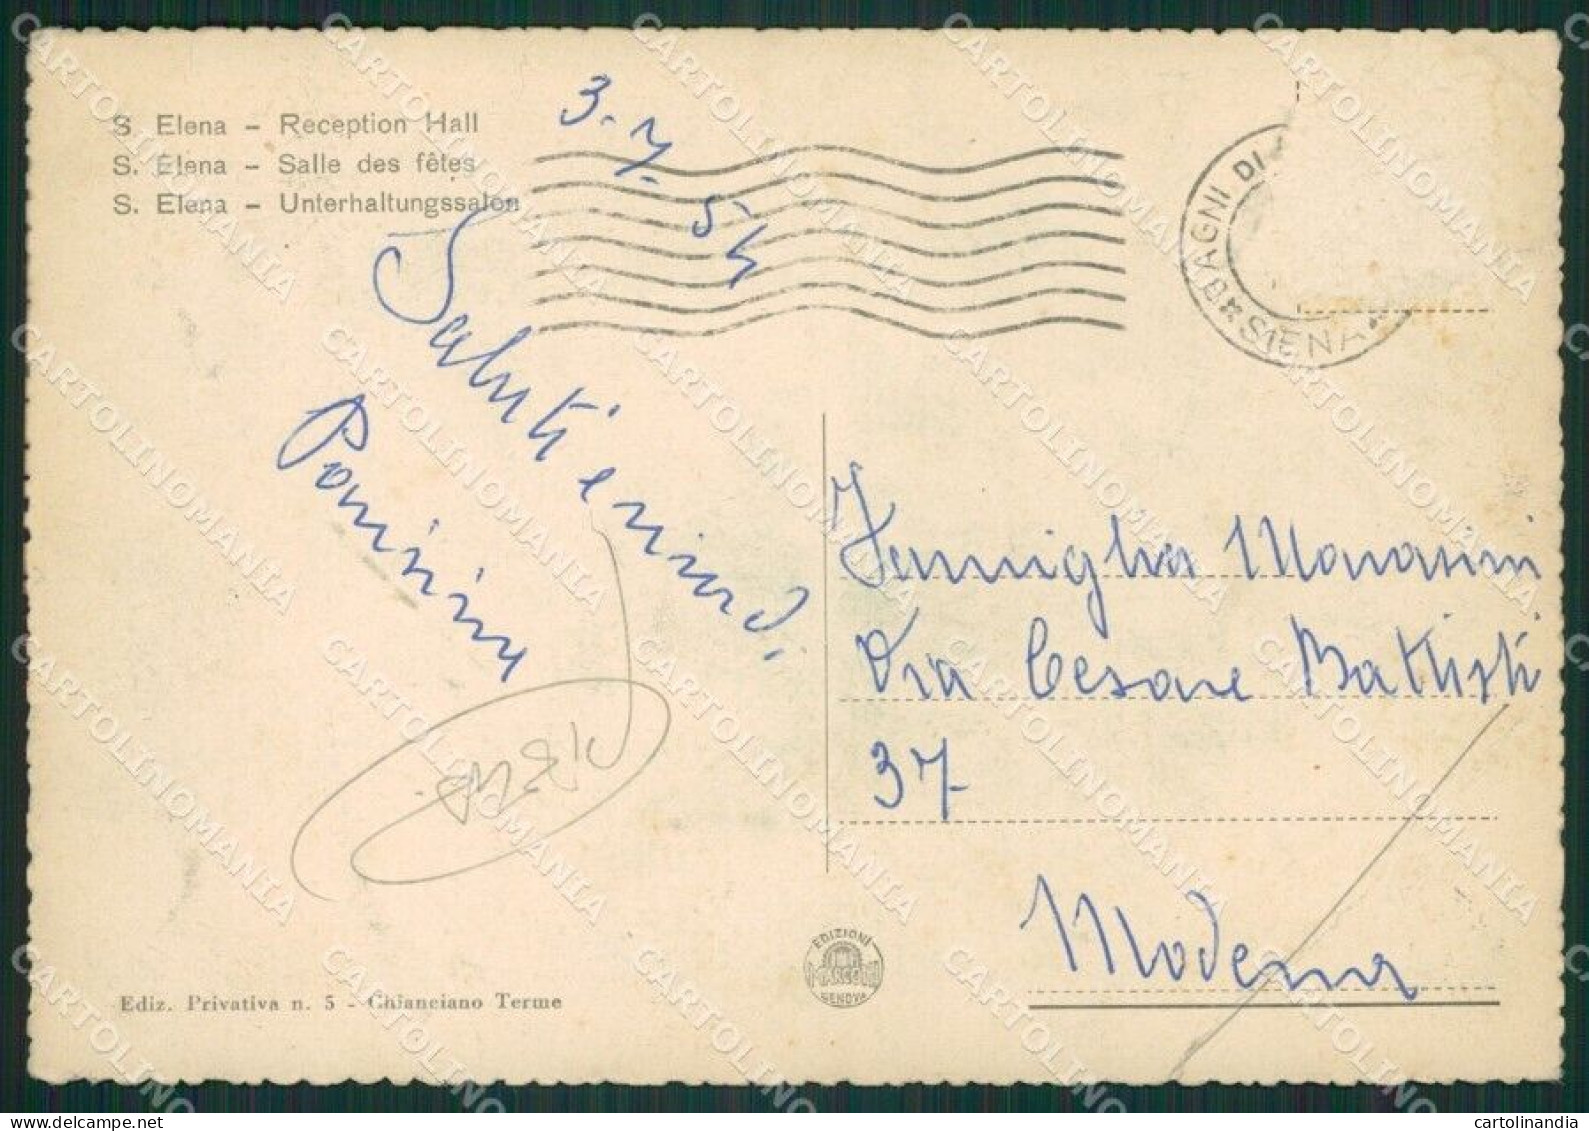 S. Elena - Reception Hall
S. Elena - Salle des fêtes
S. Elena - Unterhaltungssalon
3-7-54
BAGNI DI
SIENA
Saluti
Famiglia
Via Cesare Battisti
37
Modena
EDIZIONI
MARCONI
GENOVA
Ediz. Privativa n. 5 - Chianciano Terme
CARTOLINOMANIA
cartolinandia